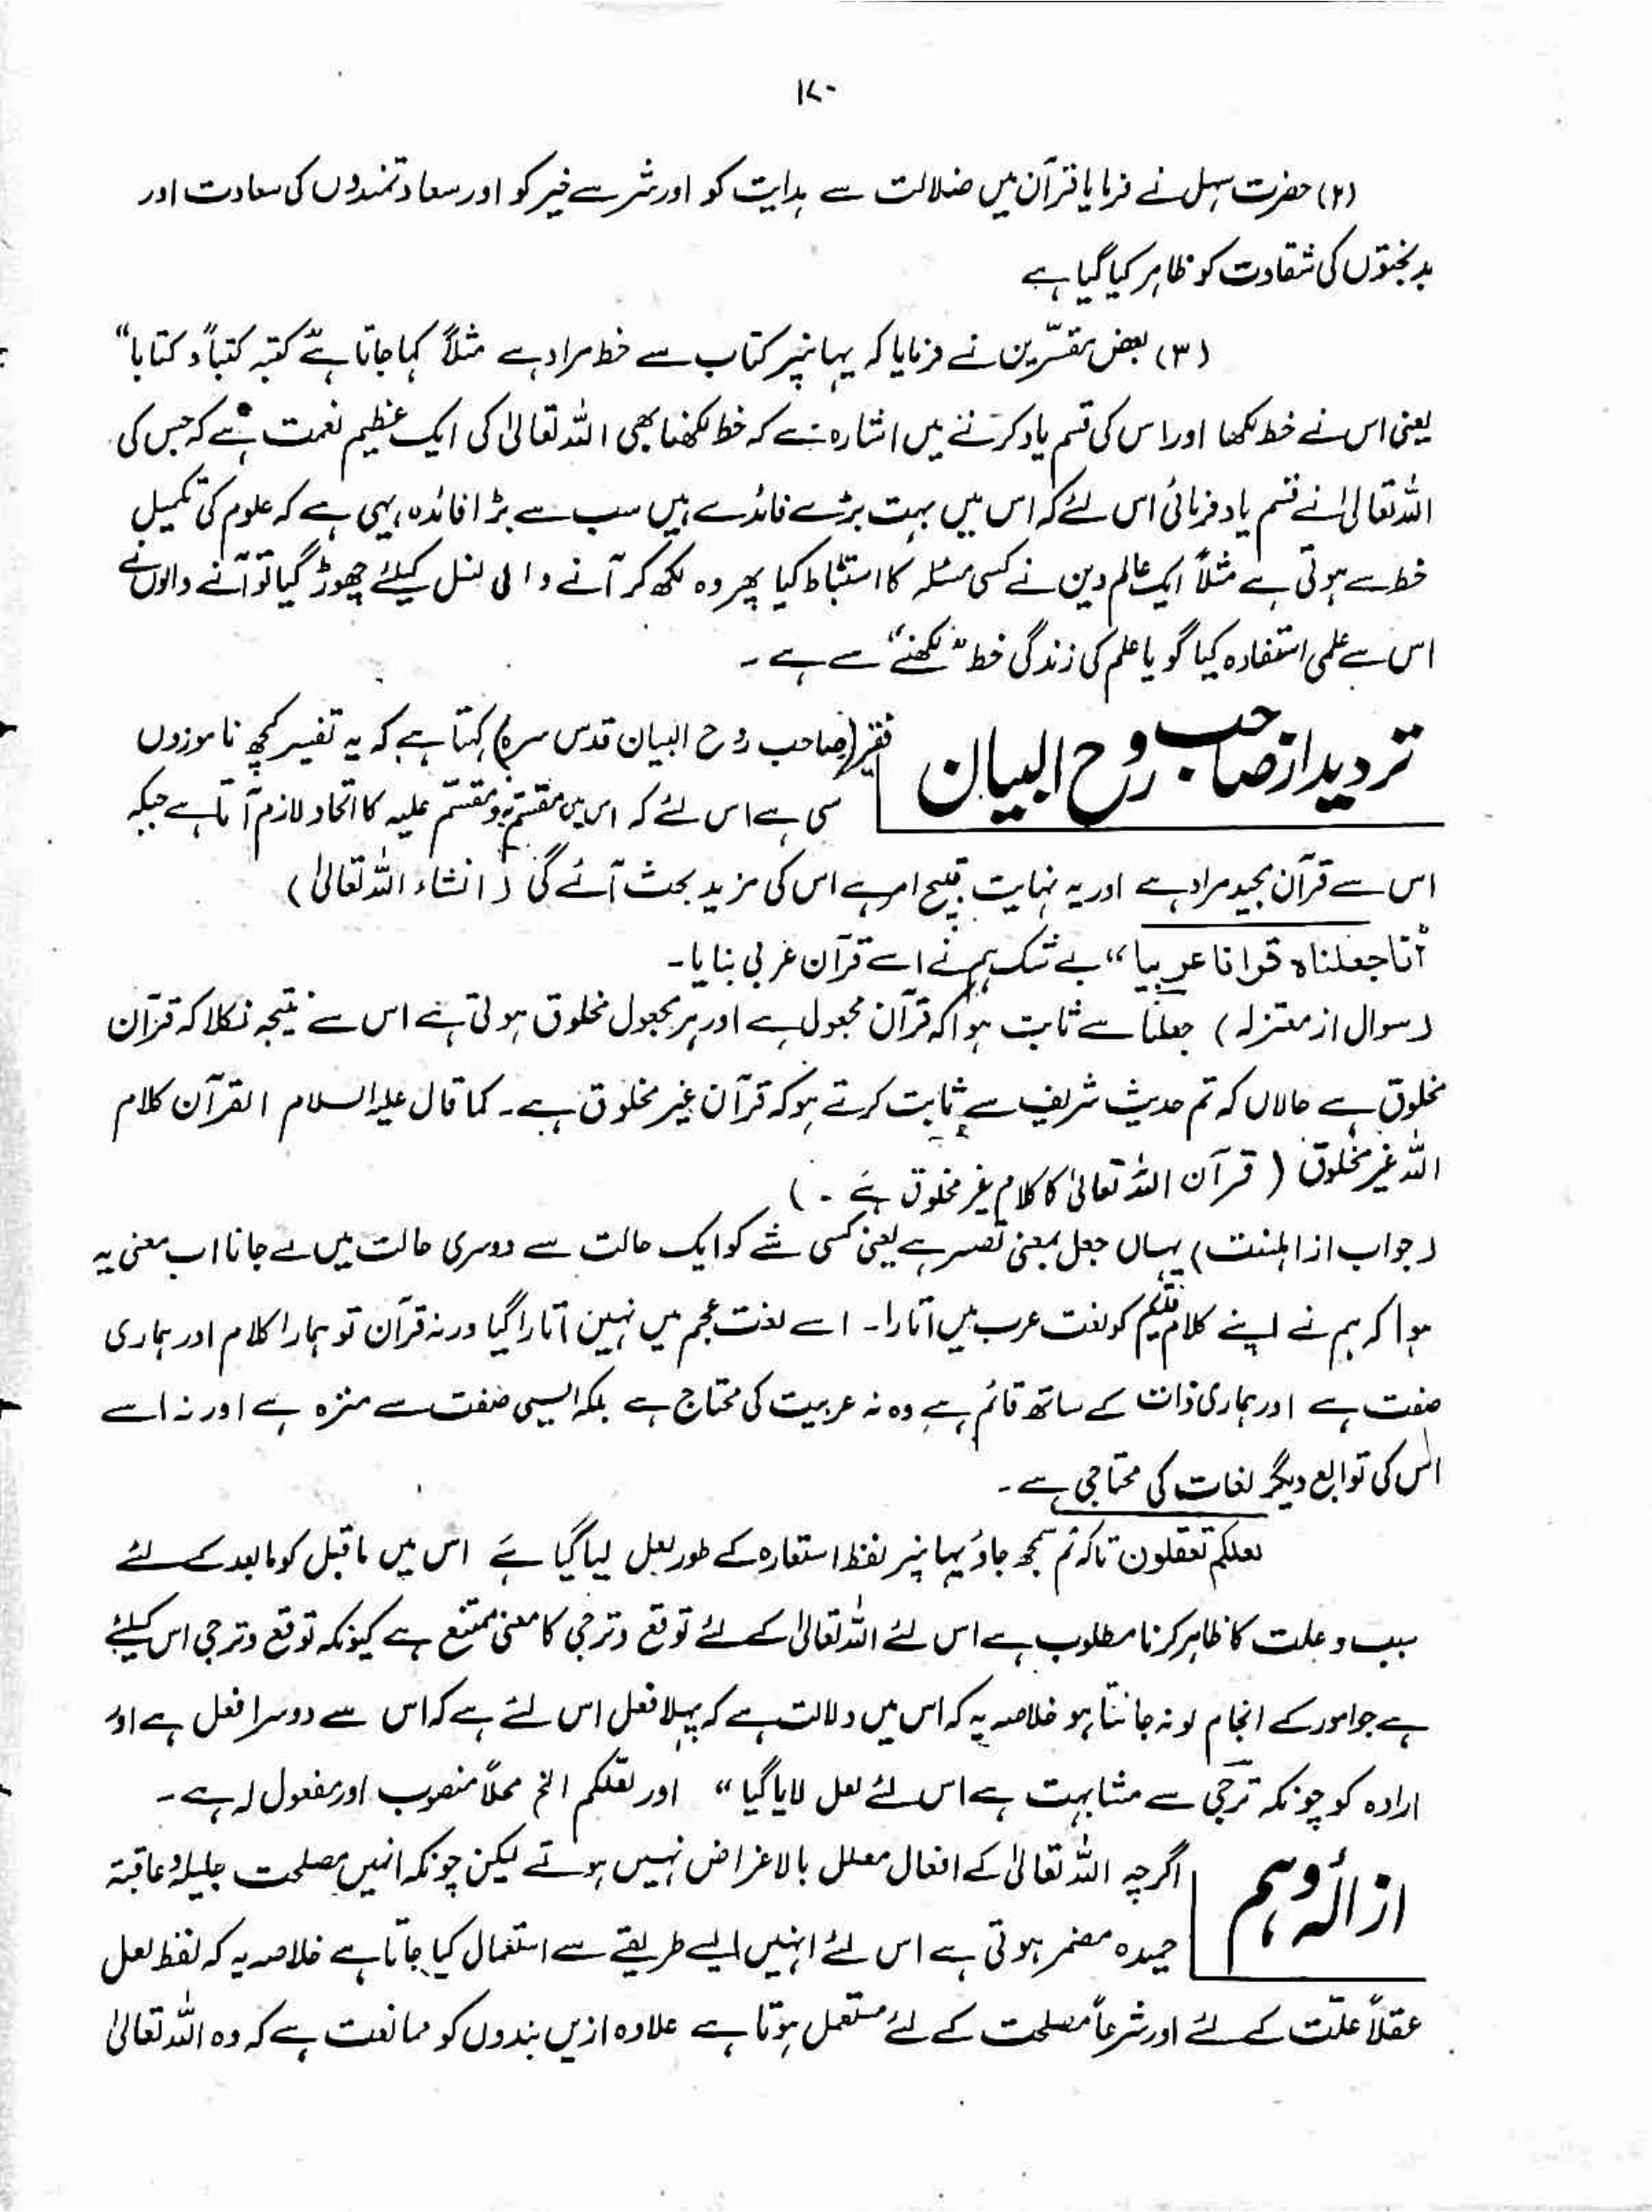 ۱۷۰
(۲) حضرت سہل نے فرمایا قرآن میں ضلالت سے ہدایت کو اور شر سے خیر کو اور سعادتمندوں کی سعادت اور
بدبختوں کی شقاوت کو ظاہر کیا گیا ہے
(۳) بعض مفسّرین نے فرمایا کہ یہانپر کتاب سے خط مراد ہے مثلاً کہا جاتا ہے کتبہ کتباً و کتابا“
یعنی اس نے خط لکھا اور اس کی قسم یاد کرنے میں اشارہ ہے کہ خط لکھنا بھی اللہ تعالیٰ کی ایک عظیم نعمت ہے کہ جس کی
اللہ تعالیٰ نے قسم یاد فرمائی اس لئے کہ اس میں بہت بڑے فائدے ہیں سب سے بڑا فائدہ یہی ہے کہ علوم کی تکمیل
خط سے ہوتی ہے مثلاً ایک عالم دین نے کسی مسئلہ کا استنباط کیا پھر وہ لکھ کر آنے والی نسل کیلئے چھوڑ گیا تو آنے والوں نے
اس سے علمی استفادہ کیا گویا علم کی زندگی خط ”لکھنے“ سے ہے ۔
تردید از صاحب روح البیان
فقیر (صاحب روح البیان قدس سرہ) کہتا ہے کہ یہ تفسیر کچھ ناموزوں
سی ہے اس لئے کہ اس میں مقسم بہ و مقسم علیہ کا اتحاد لازم آتا ہے جبکہ
اس سے قرآن مجید مراد ہے اور یہ نہایت قبیح امر ہے اس کی مزید بحث آئے گی (انشاء اللہ تعالیٰ)
انا جعلناہ قرانا عربیا“ بے شک ہم نے اسے قرآن عربی بنایا۔
(سوال از معتزلہ) جعلنا سے ثابت ہوا کہ قرآن مجعول ہے اور ہر مجعول مخلوق ہوتی ہے اس سے نتیجہ نکلا کہ قرآن
مخلوق ہے حالاں کہ تم حدیث شریف سے ثابت کرتے ہو کہ قرآن غیر مخلوق ہے۔ کما قال علیہ السلام القرآن کلام
اللہ غیر مخلوق (قرآن اللہ تعالیٰ کا کلام غیر مخلوق ہے ۔)
(جواب از اہلسنت) یہاں جعل بمعنی تصییر ہے یعنی کسی شے کو ایک حالت سے دوسری حالت میں لے جانا اب معنی یہ
ہوا کہ ہم نے اپنے کلام قدیم کو لغت عرب میں اتارا۔ اسے لغت عجم میں نہیں اتارا گیا ورنہ قرآن تو ہمارا کلام اور ہماری
صفت ہے اور ہماری ذات کے ساتھ قائم ہے وہ نہ عربیت کی محتاج ہے بلکہ ایسی صفت سے منزہ ہے اور نہ اسے
اس کی توابع دیگر لغات کی محتاجی ہے ۔
لعلکم تعقلون تاکہ تم سمجھ جاؤ یہانپر لفظ استعارہ کے طور لعل لیا گیا ہے اس میں ماقبل کو مابعد کے لئے
سبب و علت کا ظاہر کرنا مطلوب ہے اس لئے اللہ تعالیٰ کے لئے توقع و ترجی کا معنی ممتنع ہے کیونکہ توقع و ترجی اس کیلئے
ہے جو امور کے انجام لو نہ جانتا ہو خلاصہ یہ کہ اس میں دلالت ہے کہ پہلا فعل اس لئے ہے کہ اس سے دوسرا فعل ہے اور
ارادہ کو چونکہ ترجّی سے مشابہت ہے اس لئے لعل لایا گیا“ اور لعلکم الخ محلاً منصوب اور مفعول لہ ہے ۔
ازالہ وہم
اگرچہ اللہ تعالیٰ کے افعال معلل بالاغراض نہیں ہوتے لیکن چونکہ انہیں مصلحت جلیلہ و عاقبۃ
حمیدہ مضمر ہوتی ہے اس لئے انہیں ایسے طریقے سے استعمال کیا جاتا ہے خلاصہ یہ کہ لفظ لعل
عقلاً علّت کے لئے اور شرعاً مصلحت کے لئے مستعمل ہوتا ہے علاوہ ازیں بندوں کو ممانعت ہے کہ وہ اللہ تعالیٰ